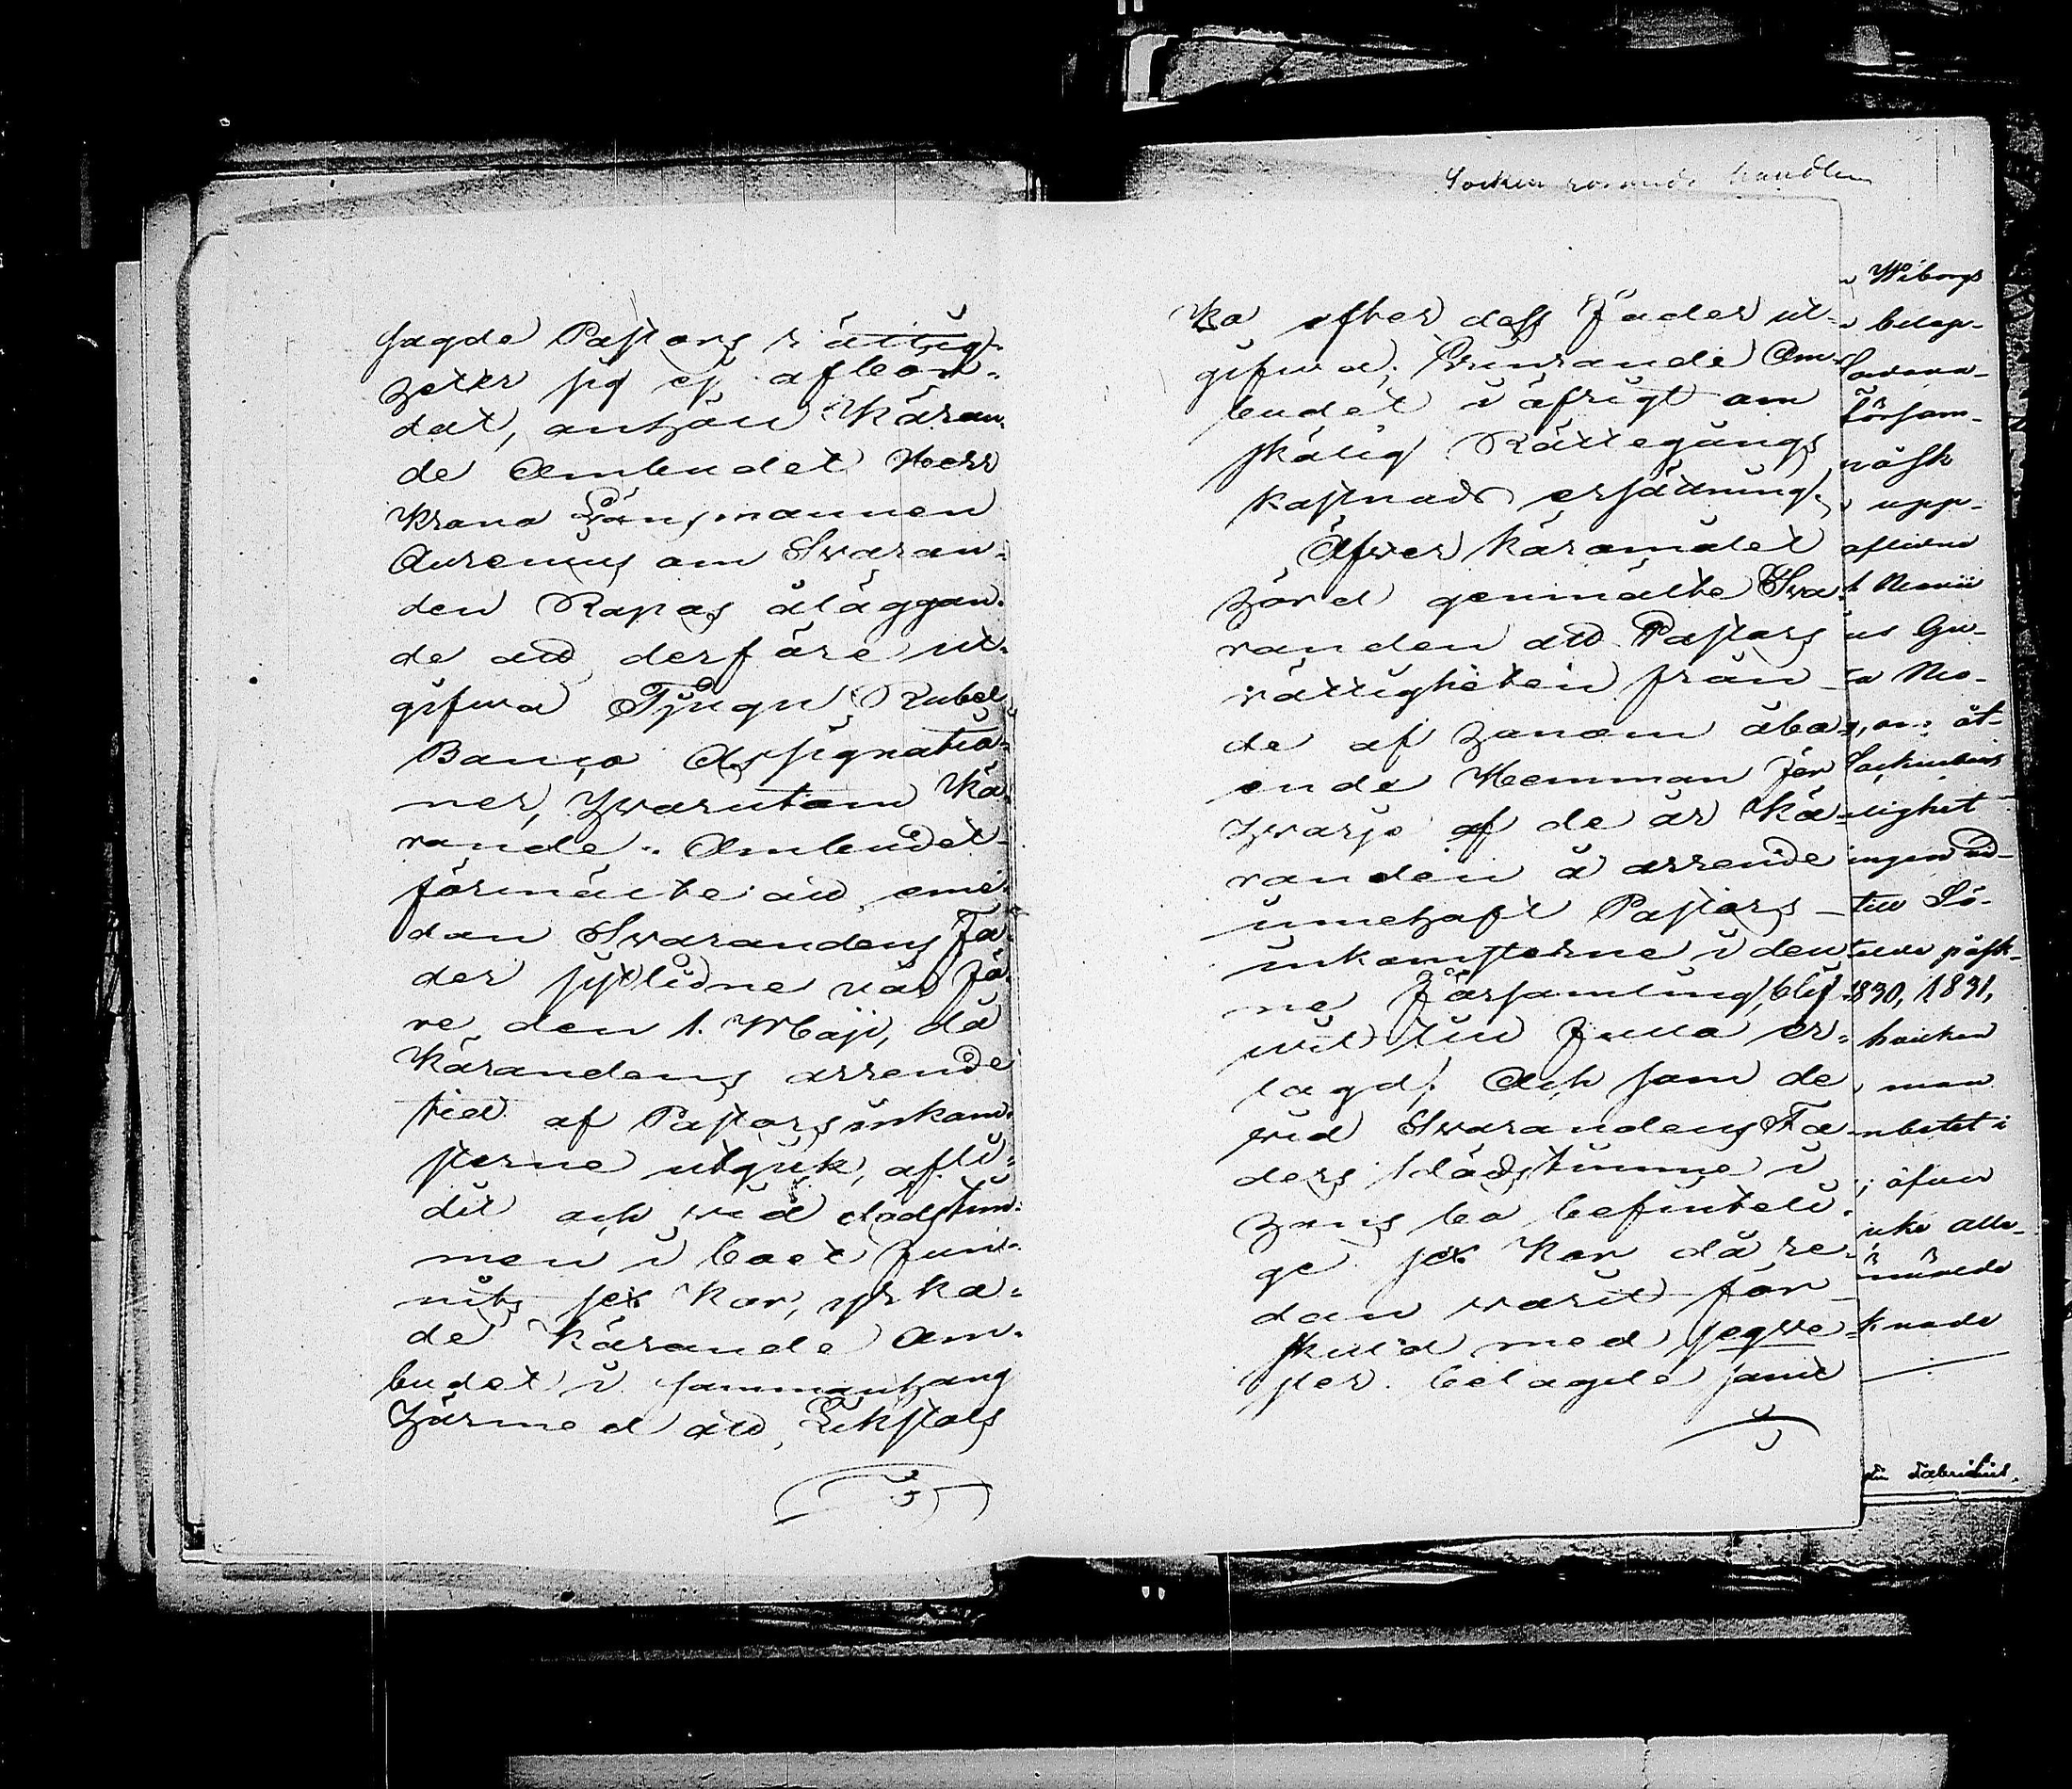 sagde Pastors rättig-
heter sig ej afbör-
dat, anhöll Käran-
de Ombudet Herr
Krono Länsmannen
Aurenius om Svaran-
den Rapas åläggan-
de att derföre ut-
gifwa Tjugu Rubel
Banco Assignatio-
ner, hwarutom Kä-
rande Ombudet
förmälte att, eme-
dan Svarandens Fa-
der sistlidne vår fö-
re den 1. Maji, då
Kärandens arrende
tid af Pastors inkom-
sterne utgick, afli-
dit och wid dödstim-
men i boet funn-
nits sex kor, yrka-
de Kärande Om-
budet i sammanhang
härmed att, Likstols
Ko efter dess Fader ut-
gifwa; Kärande Om-
budet i öfrigt om
skälig Rättegångs
kostnads ersättning.
Öfwer käromålet
hörd genmälte Sva-
randen att Pastors
rättigheten från
de af honom åbo-
ende Hemman för
hwarje af de år Kä-
randen å arrende
innehaft Pastors
inkomsterne i den-
ne Församling, blif-
wit till fullo er-
lagd; Och som de
wid Svarandens Fa-
ders dödstimme i
hans bo befinteli-
ge sex kor då re-
dan warit för-
skuld med seqve-
ster belagde samt
Socken rörande handlin
Wiborgs
belop-
Lovara-
Försam-
wåsk
upp-
aflidne
us Gu-
a Mo-
om åt-
lighet
ingen
till Lö-
påsk-
1830, 1831,
hwilken
man
nbetet i
; öfwer
icke alla
knade
Fabricius.